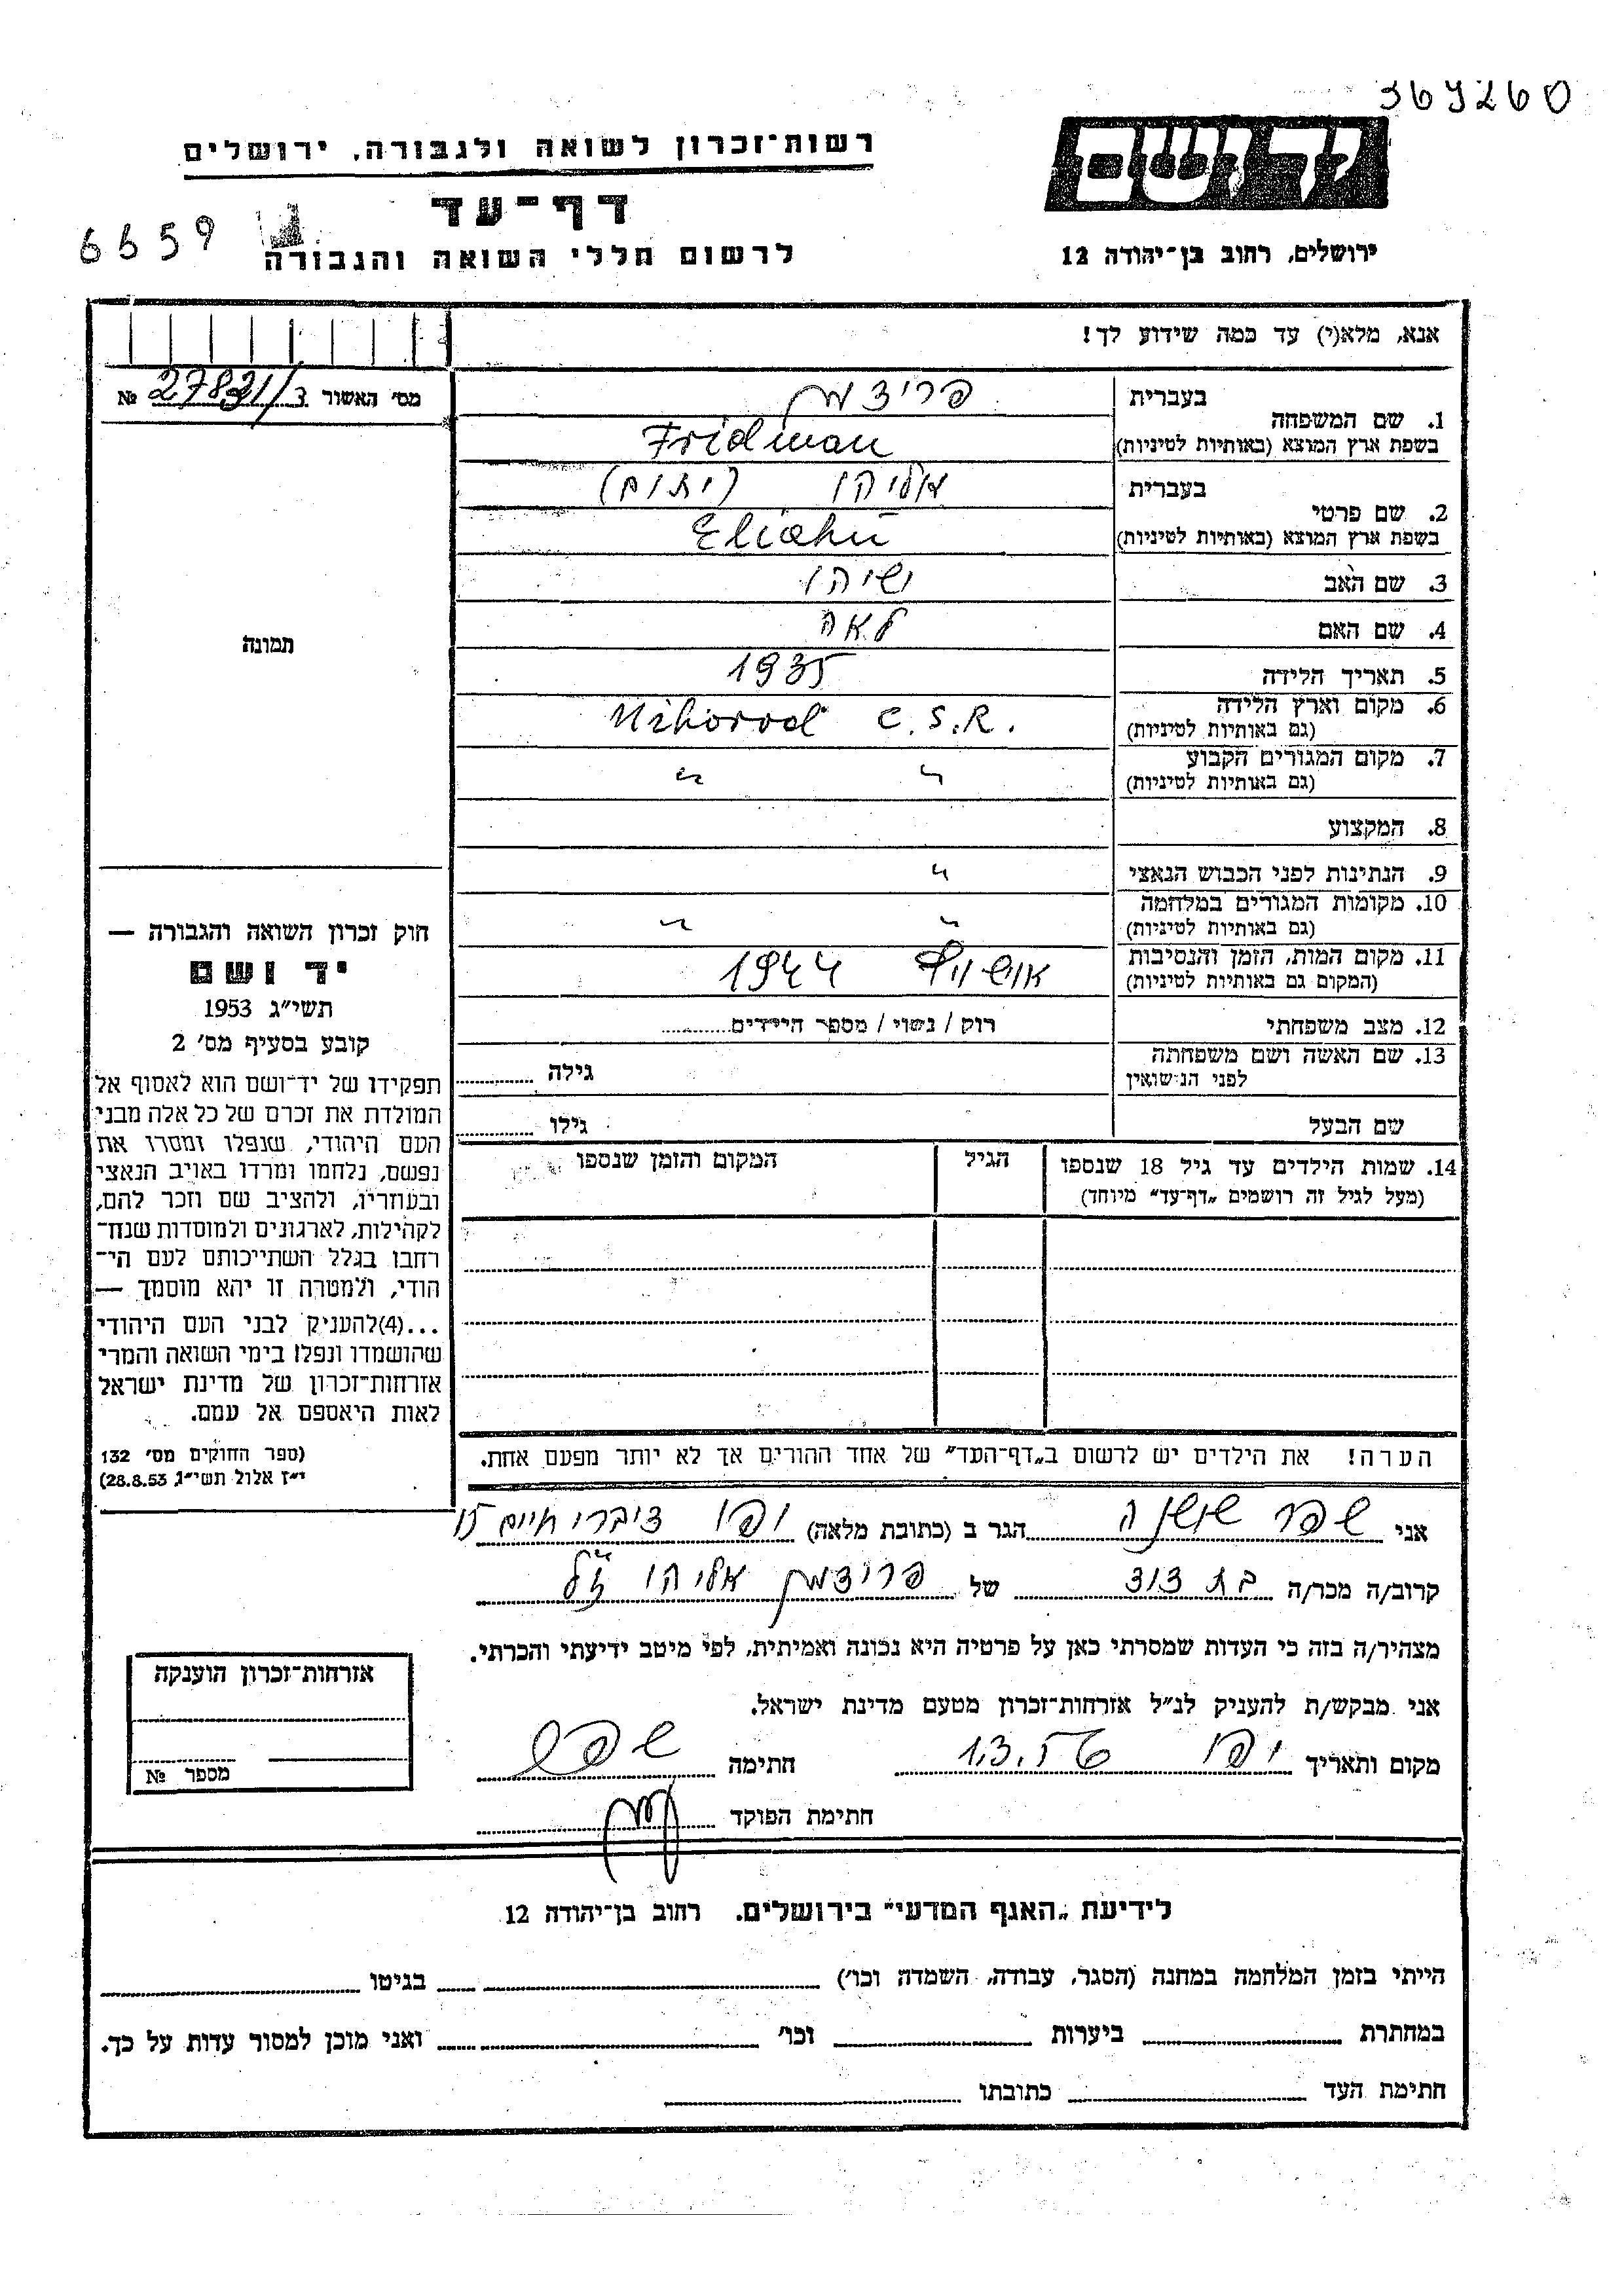 369260
רשות־זכרון לשואה ולגבורה, ירושלים
יד ושם
דף־עד
6659
לרשום חללי השואה והגבורה
ירושלים, רחוב בן־יהודה 12
אנא, מלא(י) עד כמה שידוע לך!
מס' האשור 27831/ג №
1. שם המשפחה בעברית פרידמן
בשפת ארץ המוצא (באותיות לטיניות) Fridman
2. שם פרטי בעברית אליהו (יתום)
בשפת ארץ המוצא (באותיות לטיניות) Eliahu
3. שם האב ישיהו
4. שם האם לאה
תמונה
5. תאריך הלידה 1935
6. מקום וארץ הלידה C.S.R.
(גם באותיות לטיניות)
7. מקום המגורים הקבוע " "
(גם באותיות לטיניות)
8. המקצוע
9. הנתינות לפני הכבוש הנאצי "
10. מקומות המגורים במלחמה " "
(גם באותיות לטיניות)
11. מקום המות, הזמן והנסיבות אושוויץ 1944
(המקום גם באותיות לטיניות)
12. מצב משפחתי רוק / נשוי / מספר הילדים
13. שם האשה ושם משפחתה
לפני הנישואין גילה
שם הבעל גילו
14. שמות הילדים עד גיל 18 שנספו הגיל המקום והזמן שנספו
(מעל לגיל זה רושמים „דף־עד" מיוחד)
חוק זכרון השואה והגבורה —
יד ושם
תשי"ג 1953
קובע בסעיף מס' 2
תפקידו של יד־ושם הוא לאסוף אל
המולדת את זכרם של כל אלה מבני
העם היהודי, שנפלו ומסרו את
נפשם, נלחמו ומרדו באויב הנאצי
ובעוזריו, ולהציב שם וזכר להם,
לקהילות, לארגונים ולמוסדות שנח־
רחבו בגלל השתייכותם לעם הי־
הודי, ולמטרה זו יהא מוסמך —
...(4)להעניק לבני העם היהודי
שהושמדו ונפלו בימי השואה והמרי
אזרחות־זכרון של מדינת ישראל
לאות היאספם אל עמם.
(ספר החוקים מס' 132
י"ז אלול תשי"ג, 28.8.53)
הערה! את הילדים יש לרשום ב„דף־העד" של אחד ההורים אך לא יותר מפעם אחת.
אני שפר שושנה הגר ב (כתובת מלאה) יפו
קרוב/ה מכר/ה בת דוד של פרידמן אליהו ז"ל
מצהיר/ה בזה כי העדות שמסרתי כאן על פרטיה היא נכונה ואמיתית, לפי מיטב ידיעתי והכרתי.
אני מבקש/ת להעניק לנ"ל אזרחות־זכרון מטעם מדינת ישראל.
מקום ותאריך יפו 1.3.56 חתימה
חתימת הפוקד
אזרחות־זכרון הוענקה
מספר №
לידיעת „האגף המדעי" בירושלים. רחוב בן־יהודה 12
הייתי בזמן המלחמה במחנה (הסגר, עבודה, השמדה וכו') בגיטו
במחתרת ביערות וכו' ואני מוכן למסור עדות על כך.
חתימת העד כתובתו